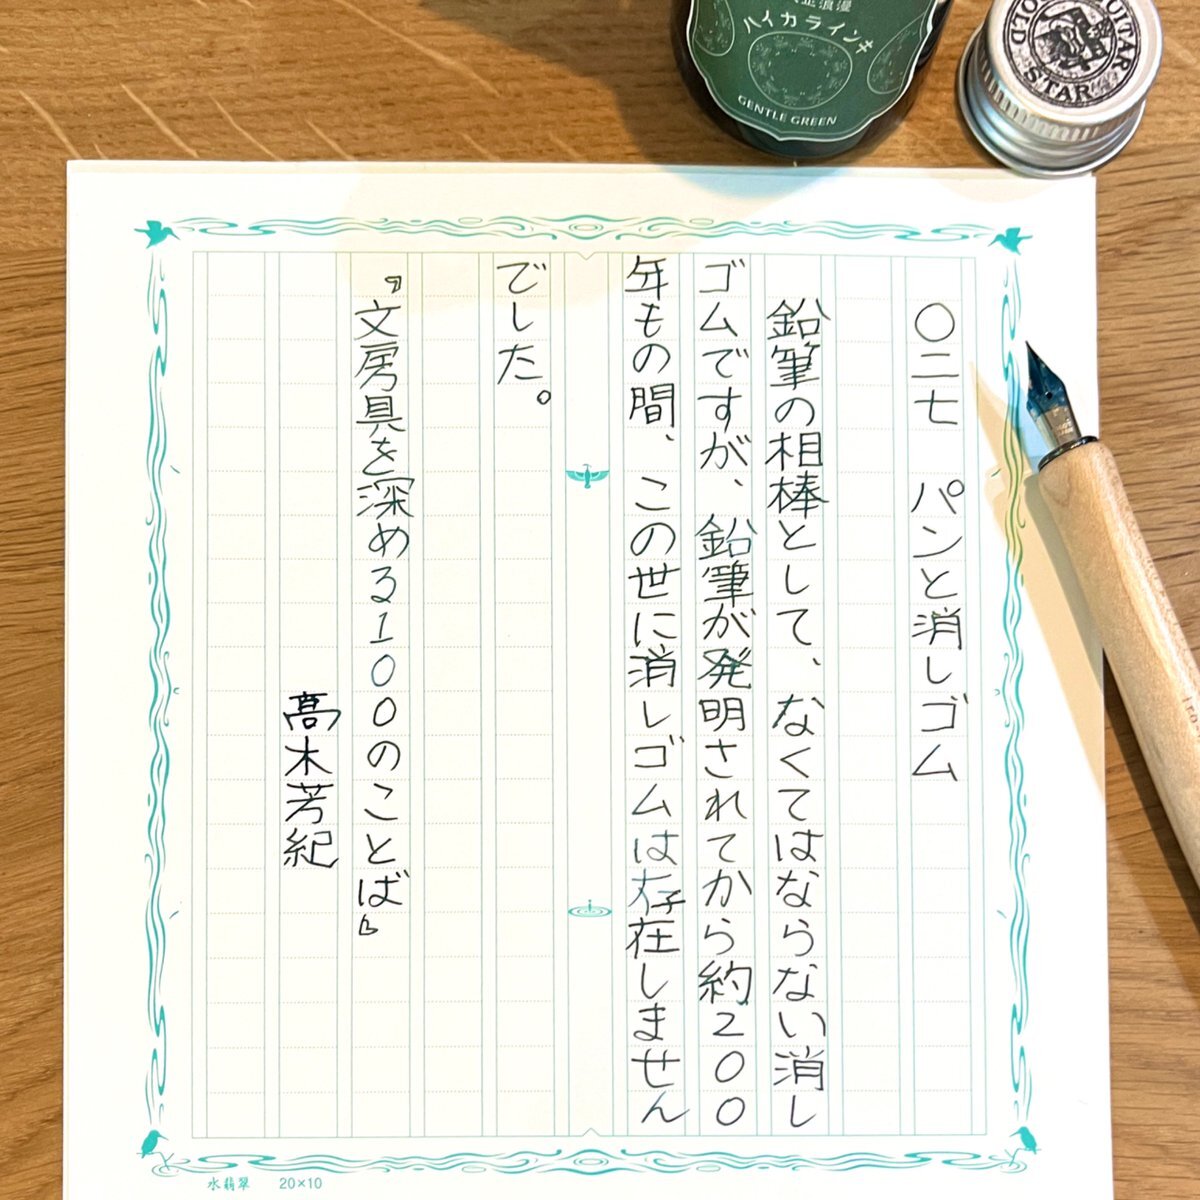 浪漫
ハイカラインキ
GENTLE GREEN
GUITAR
OLD
STAR
〇二七　パンと消しゴム
鉛筆の相棒として、なくてはならない消し
ゴムですが、鉛筆が発明されてから約200
年もの間、この世に消しゴムは存在しません
でした。
『文房具を深める100のことば』
髙木芳紀
水翡翠　20×10